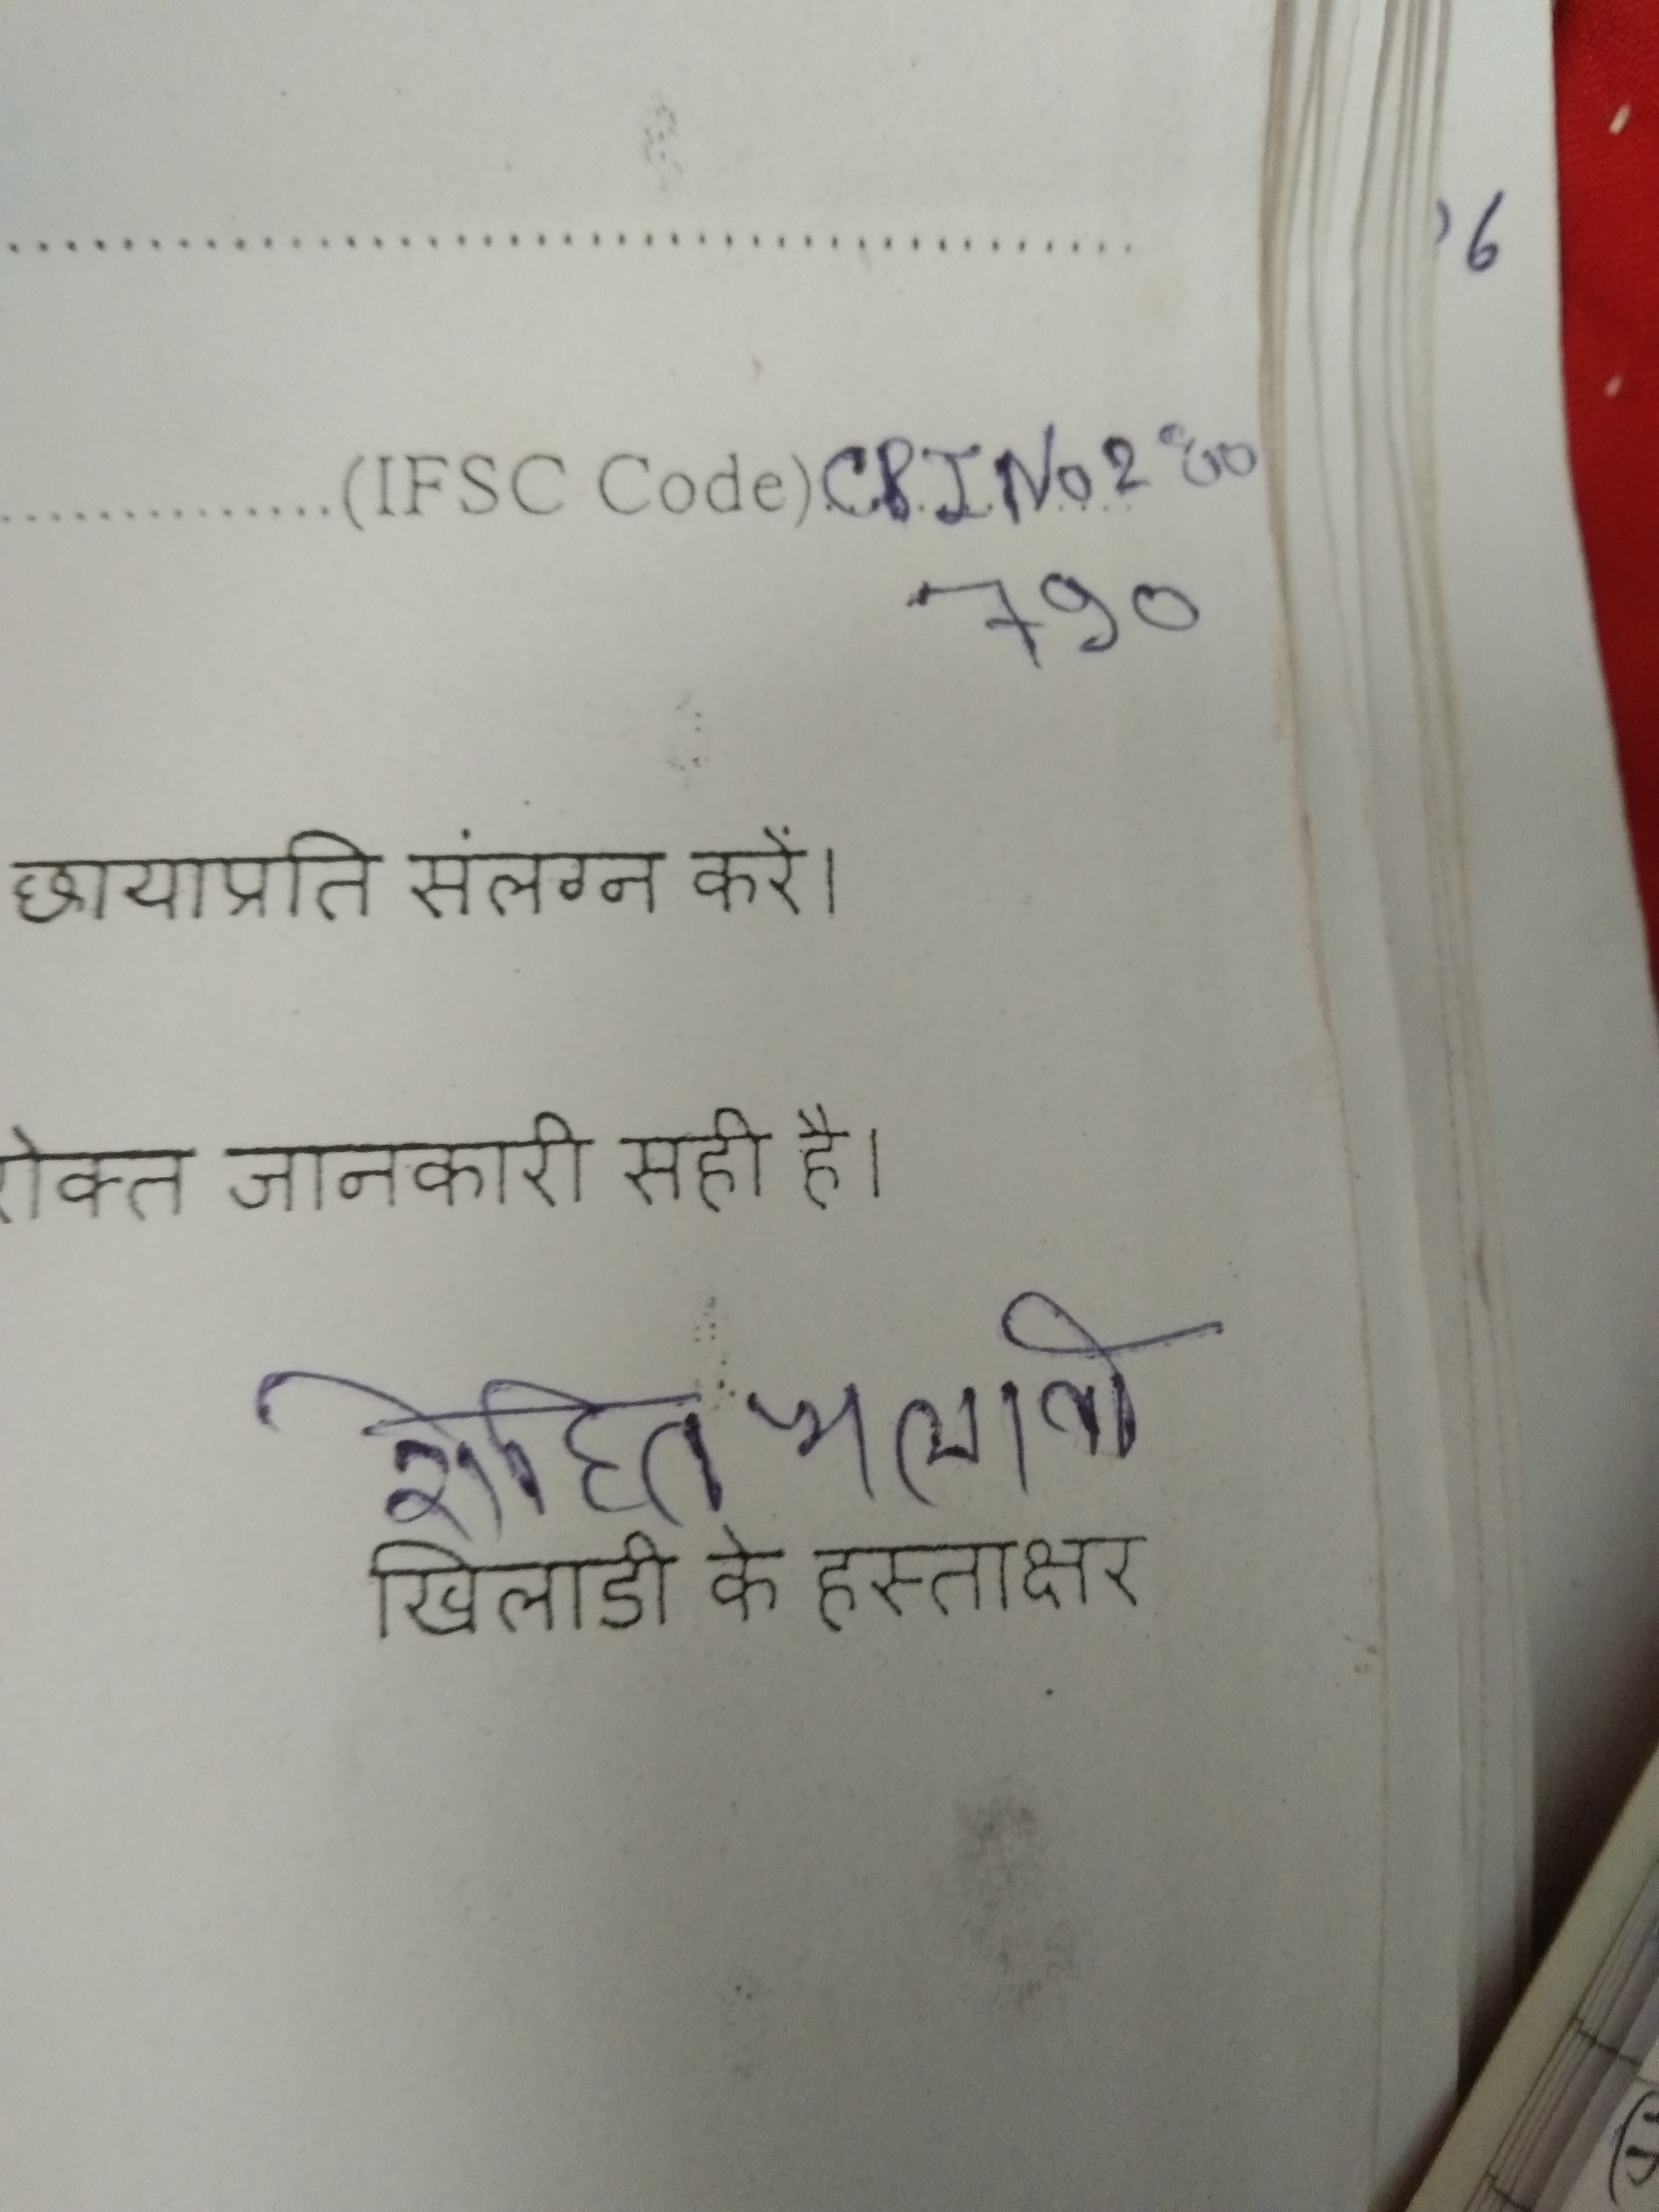 6
....................................................
...............(IFSC Code) CBIN0280
790
छायाप्रति संलग्न करें।
रोक्त जानकारी सही है।
रोहित मलावी
खिलाडी के हस्ताक्षर